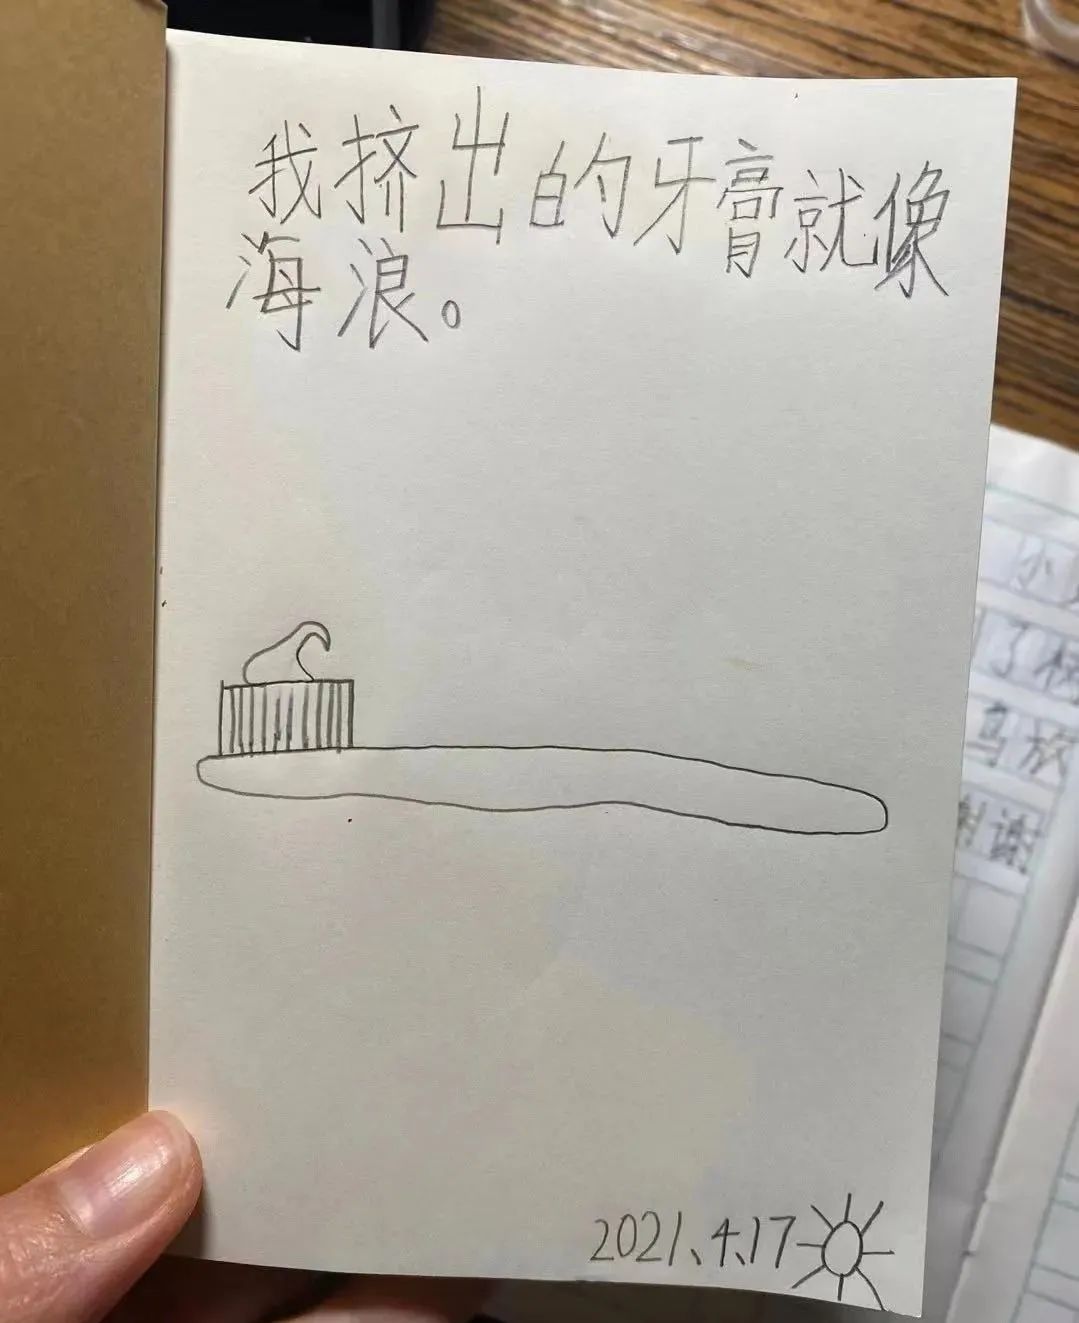 我挤出的牙膏就像
海浪。
2021、4、17
小
了
乌
谢谢